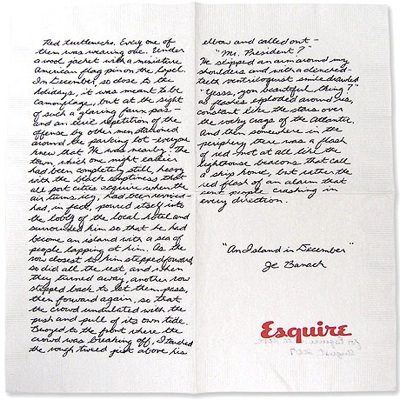 Red turtlenecks. Every one of
them was wearing one. Under
a wool jacket with a miniature
American flag pin on the lapel.
In December, so close to the
holidays, it was meant to be
camouflage, but at the sight
of such a glaring faux pas—
and an eerie repetition of the
offense by other men stationed
around the parking lot—everyone
knew that He was nearby. The
town, which one might earlier
had been completely still, heavy
with the black emptiness that
all port cities acquire when the
air turns icy, had been revived—
had, in fact, poured itself into
the lobby of the local hotel and
surrounded him so that he had
become an island with a sea of
people lapping at him. As the
row closest to him stepped forward,
so did all the rest, and when
they turned away, another row
stepped back to let them pass,
then forward again, so that
the crowd undulated with the
push and pull of its own tide.
Buoyed to the front where the
crowd was breaking off, I touched
the rough tweed just above his
elbow and called out—
"Mr. President?"
He slipped an arm around my
shoulders and with a clenched-
teeth ventriloquist smile drawled
"Yesss, you beautiful thing?"
as flashes exploded around us,
constant like the stars over
the rocky crags of the Atlantic.
And then somewhere in the
periphery there was a flash
of red—not at all like the
lighthouse beacons that call
a ship home, but rather the
red flash of an alarm that
sent people crashing in
every direction.
"An Island in December"
Je Banach
Esquire